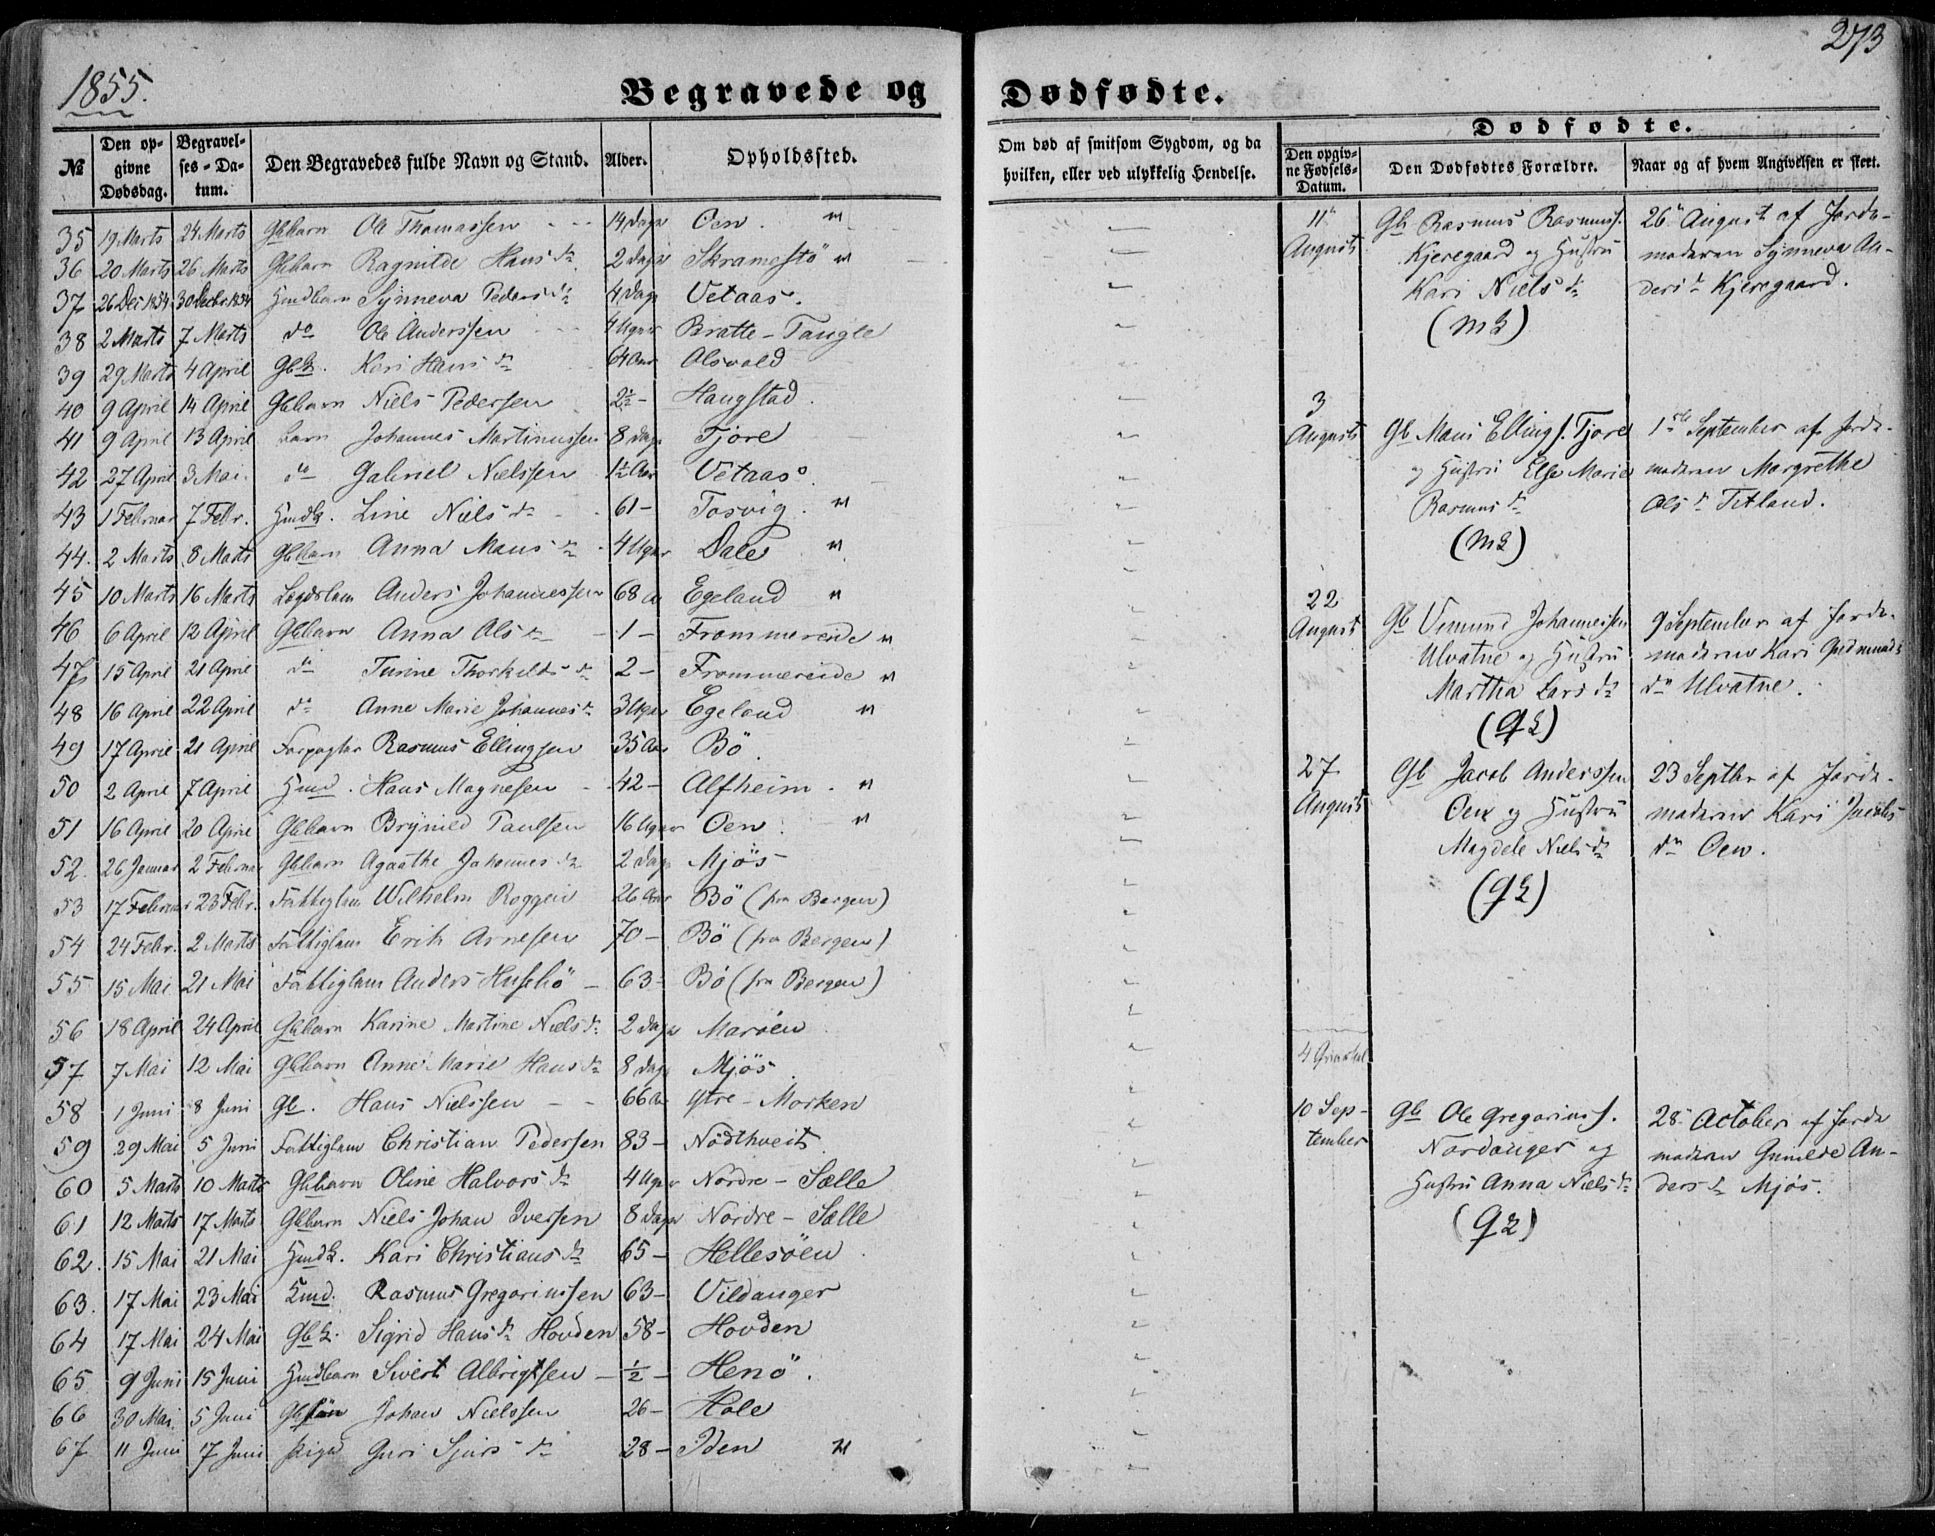 1855.
273
Begravede og Dødfødte.
№
Den opgivne Dødsdag.
Begravelses-Datum.
Den Begravedes fulde Navn og Stand.
Alder.
Opholdssted.
Om død af smitsom Sygdom, og da hvilken, eller ved ulykkelig Hendelse.
Dødfødte.
Den opgivne Fødsels-Datum.
Den Dødfødtes Forældre.
Naar og af hvem Angivelsen er skeet.
35 19 Marts 24 Marts Gbbarn Ole Thomassen 14 Dage Oen "
36 20 Marts 26 Marts Gbbarn Ragnilde Hans dr 2 Dage Skramestö "
37 26 Dec 1854 30 Decbr. 1854 Hmdbarn Synneva Peders dr 4 Dage Vetaas.
38 2 Marts 7 Marts do Ole Anderssen 4 Uger Bratte-Tangle
39 29 Marts 4 April Gbk. Kari Hans dr 64 Aar Alsvold
40 9 April 14 April Gbbarn Niels Pedersen 2½ - Haugstad.
41 9 April 13 April barn Johannes Martinussen 8 Dage Fjore
42 27 April 3 Mai do Gabriel Nielssen 1½ Aar Vetaas.
43 1 Februar 7 Febr. Hmdk. Line Niels dr 61 - Tosvig. "
44. 2 Marts 8 Marts Gbbarn Anna Mans dr 4 Uger Dale "
45 10 Marts 16 Marts Lægdslem Anders Johannessen 68 Egeland "
46 6 April 12 April Gbbarn Anna Ols dr - 1 - Frommereide "
47 15 April 21 April do Turine Thorkilds dr 2 - Frommereide "
48 16 April 22 April do Anne Marie Johannes dr 3 Uger Egeland "
49 17 April 21 April Forpagter Rasmus Ellingsen 35 Aar Bö.
50 2 April 7 April Hmd. Hans Magnesen 42 - Alfheim. "
51 16 April 20 April Gbbarn Brynild Paulsen 16 Uger Oen. "
52. 26 Januar 2 Februar Gbbarn Agathe Johannes dr 2 Dage Mjös
53 17 Februar 23 Febr. Fattiglem Wilhelm Roggen 26 Aar Bö (fra Bergen)
54 24 Febr. 2 Marts Fattiglem Erik Arnesen 70 - Bö (fra Bergen)
55 15 Mai 21 Mai Fattiglem Anders Husebö - 63 - Bö (fra Bergen)
56 18 April 24 April Gbbarn Karine Martine Niels dr 2 Dage Maröen
57 7 Mai 12 Mai Gbbarn Anne Marie Hans dr 8 Dage Mjös.
58 1 Juni 8 Juni Gb. Hans Nielssen - - 66 Aar Ytre-Morken
59 29 Mai 5 Juni Fattiglem Christian Pedersen 83 - Nödthveit
60 5 Marts 10 Marts Gbbarn Oline Halvors dr 4 Uger Nordre-Sælle
61 12 Marts 17 Marts Gbbarn Niels Johan Iversen 8 Dage Nordre-Sælle
62. 15 Mai 21 Mai Hmdk. Kari Christians dr 65 - Hellesöen
63. 17 Mai 23 Mai Hmd. Rasmus Gregoriussen 63 - Vildanger
64 17 Mai 24 Mai Gbk. Sigrid Hans dr Hovden 58 - Hovden
65 9 Juni 15 Juni Hmdbarn Sivert Albrigtsen - ½ - Henö.
66 30 Mai 5 Juni Gbsön Johan Nielssen 26 - Hole
67 11 Juni 17 Juni pige Guri Sjurs dr 28 - Iden "
11 August
Gb Rasmus Rasmuss. Kjeregaard og Hustru
Kari Niels dr
(mk)
26 August af Jorde-
moderen Synneva An-
ders dr Kjeregaard.
3 August
Gb Mons Ellings. Fjore
og Hustru Else Marie
Rasmus dr
(mk)
1ste September af Jorde-
moderen Margrethe
Ols dr Tetland.
22 August
Gb Vemund Johannessen
Ulvatne og Hustru
Martha Lars dr
(qk)
9 September af Jorde-
moderen Kari Gudmunds
dr Ulvatne.
27 August
Gb Jacob Anderssen
Oen og Hustru
Magdele Niels dr
(qk)
23 Septbr af Jorde-
moderen Kari Jacobs
dr Oen.
4 Qvartal
10 Sep-
tember
Gb Ole Gregorius s.
Nordanger og
Hustru Anna Niels dr
(qk)
28 October af Jorde
moderen Gunilde An-
ders dr Mjös.